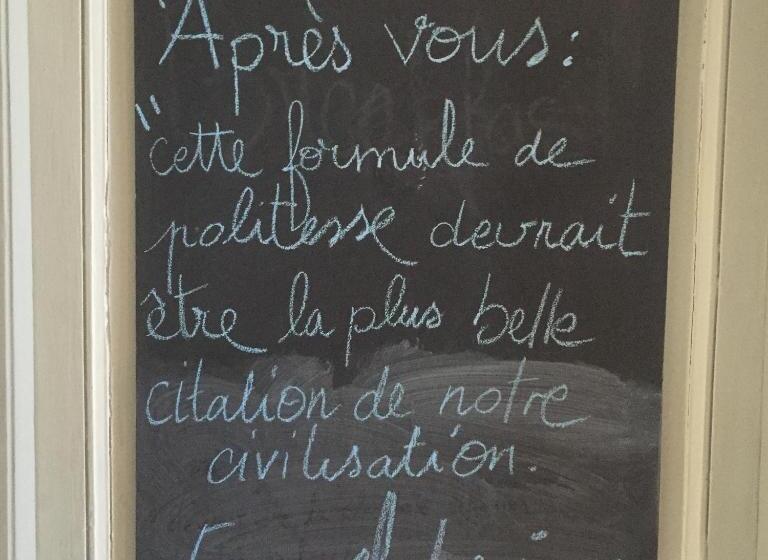 Après vous:
"cette formule de
politesse devrait
être la plus belle
citation de notre
civilisation.